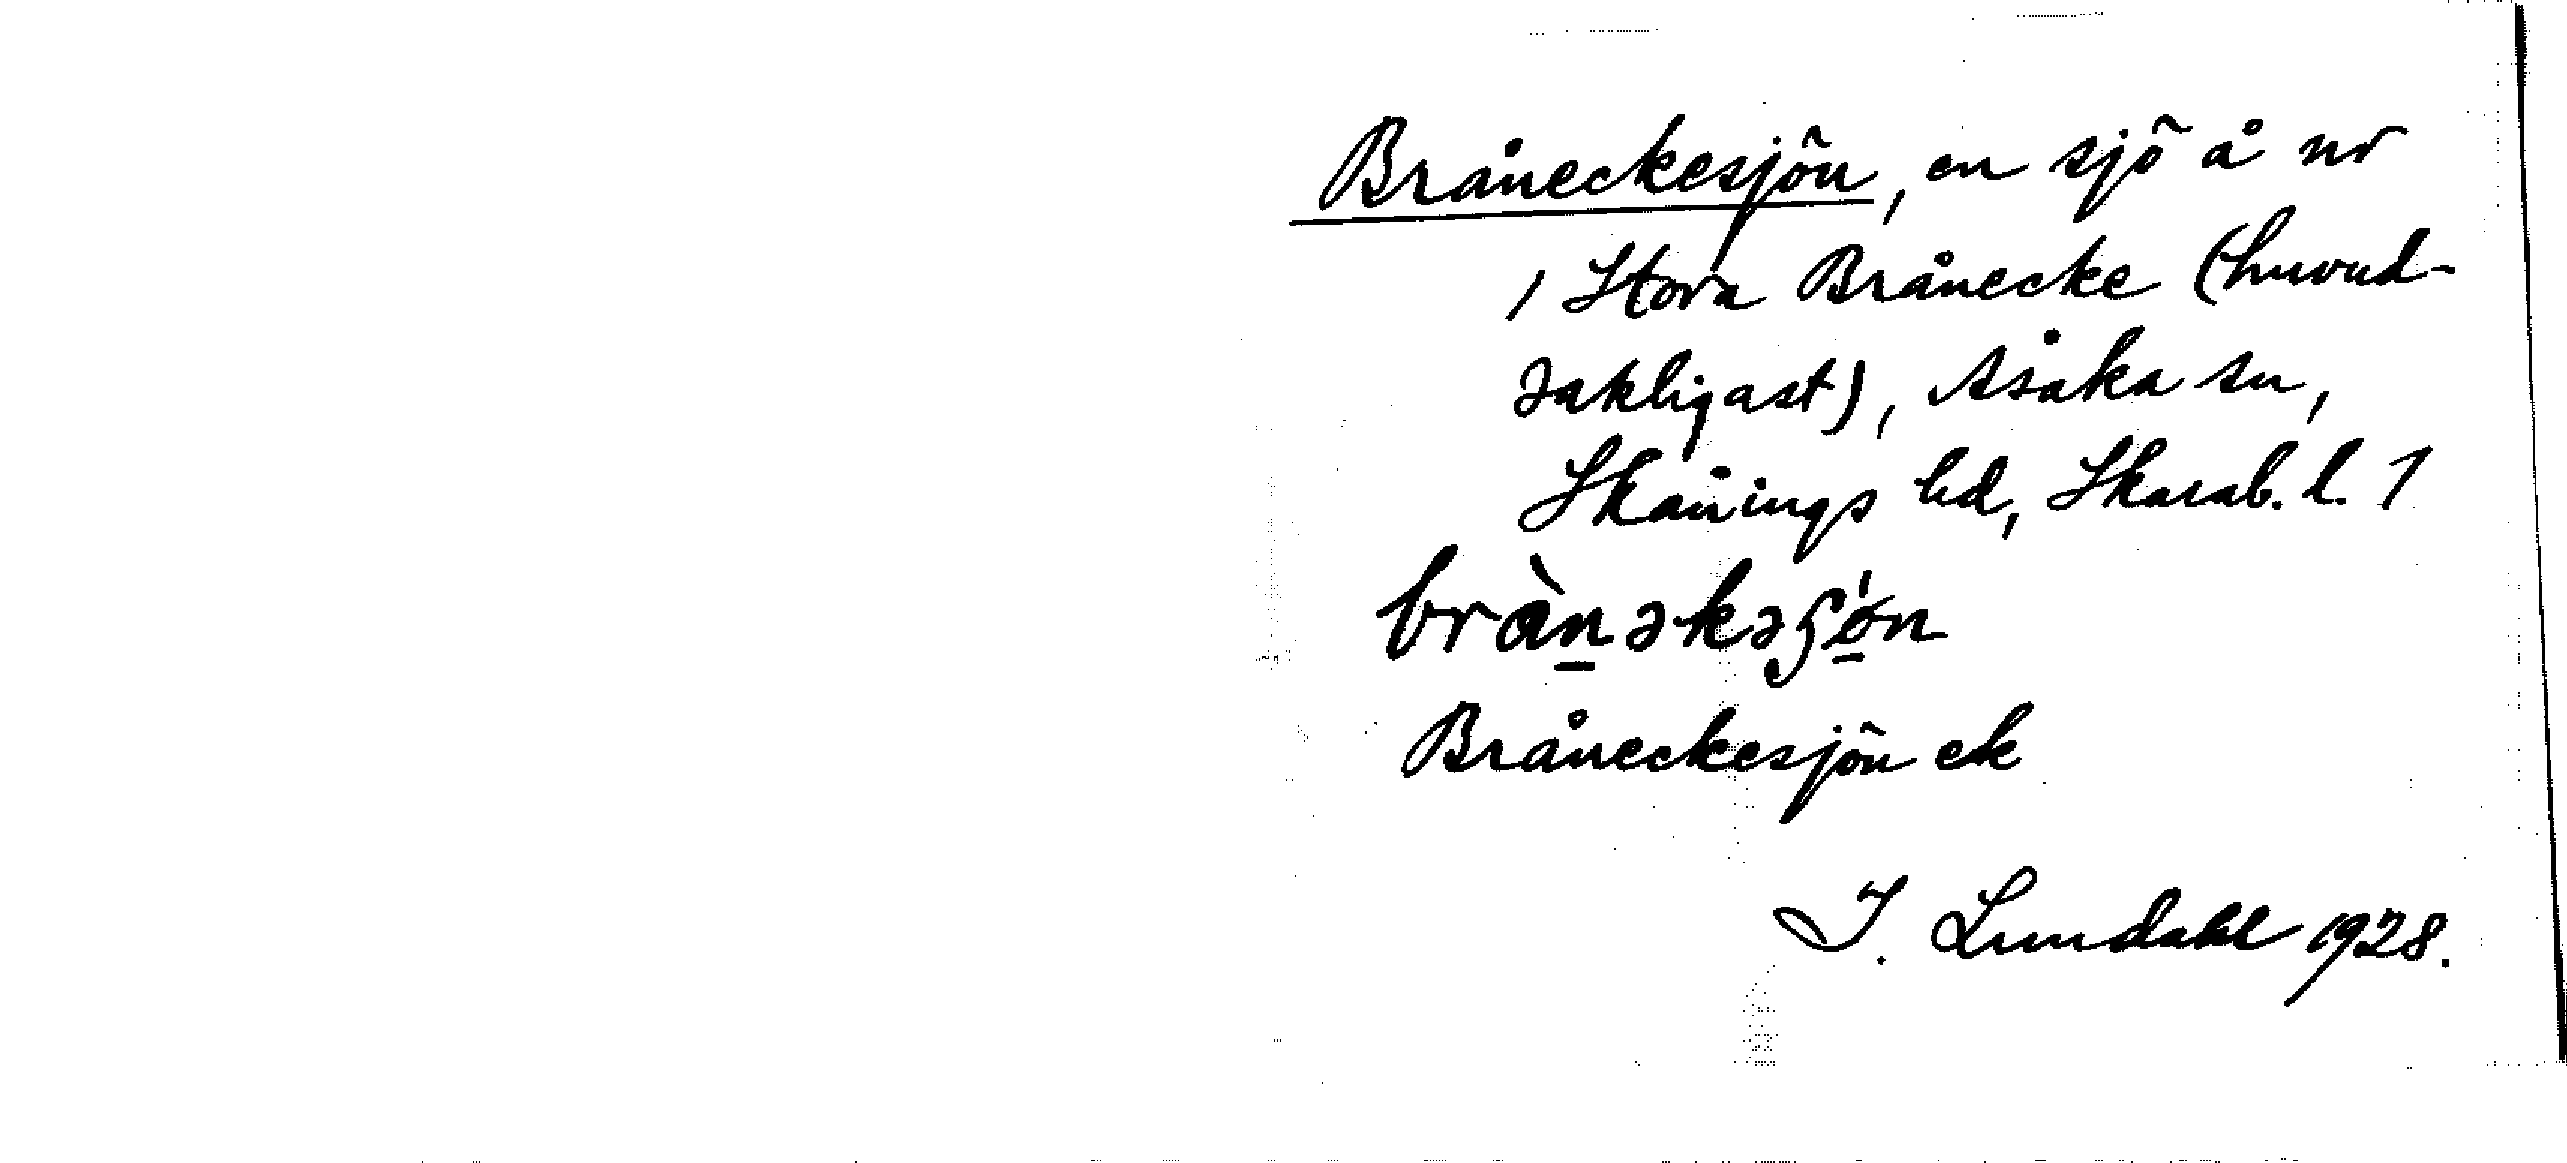 Bråneckesjön, en sjö å nr
1 Stora Brånecke (huvud-
sakligast), Åsaka sn,
Skånings hd, Skarab. l. 1
brànəkəʂǿn
Bråneckesjön ek
I. Lundahl 1928.